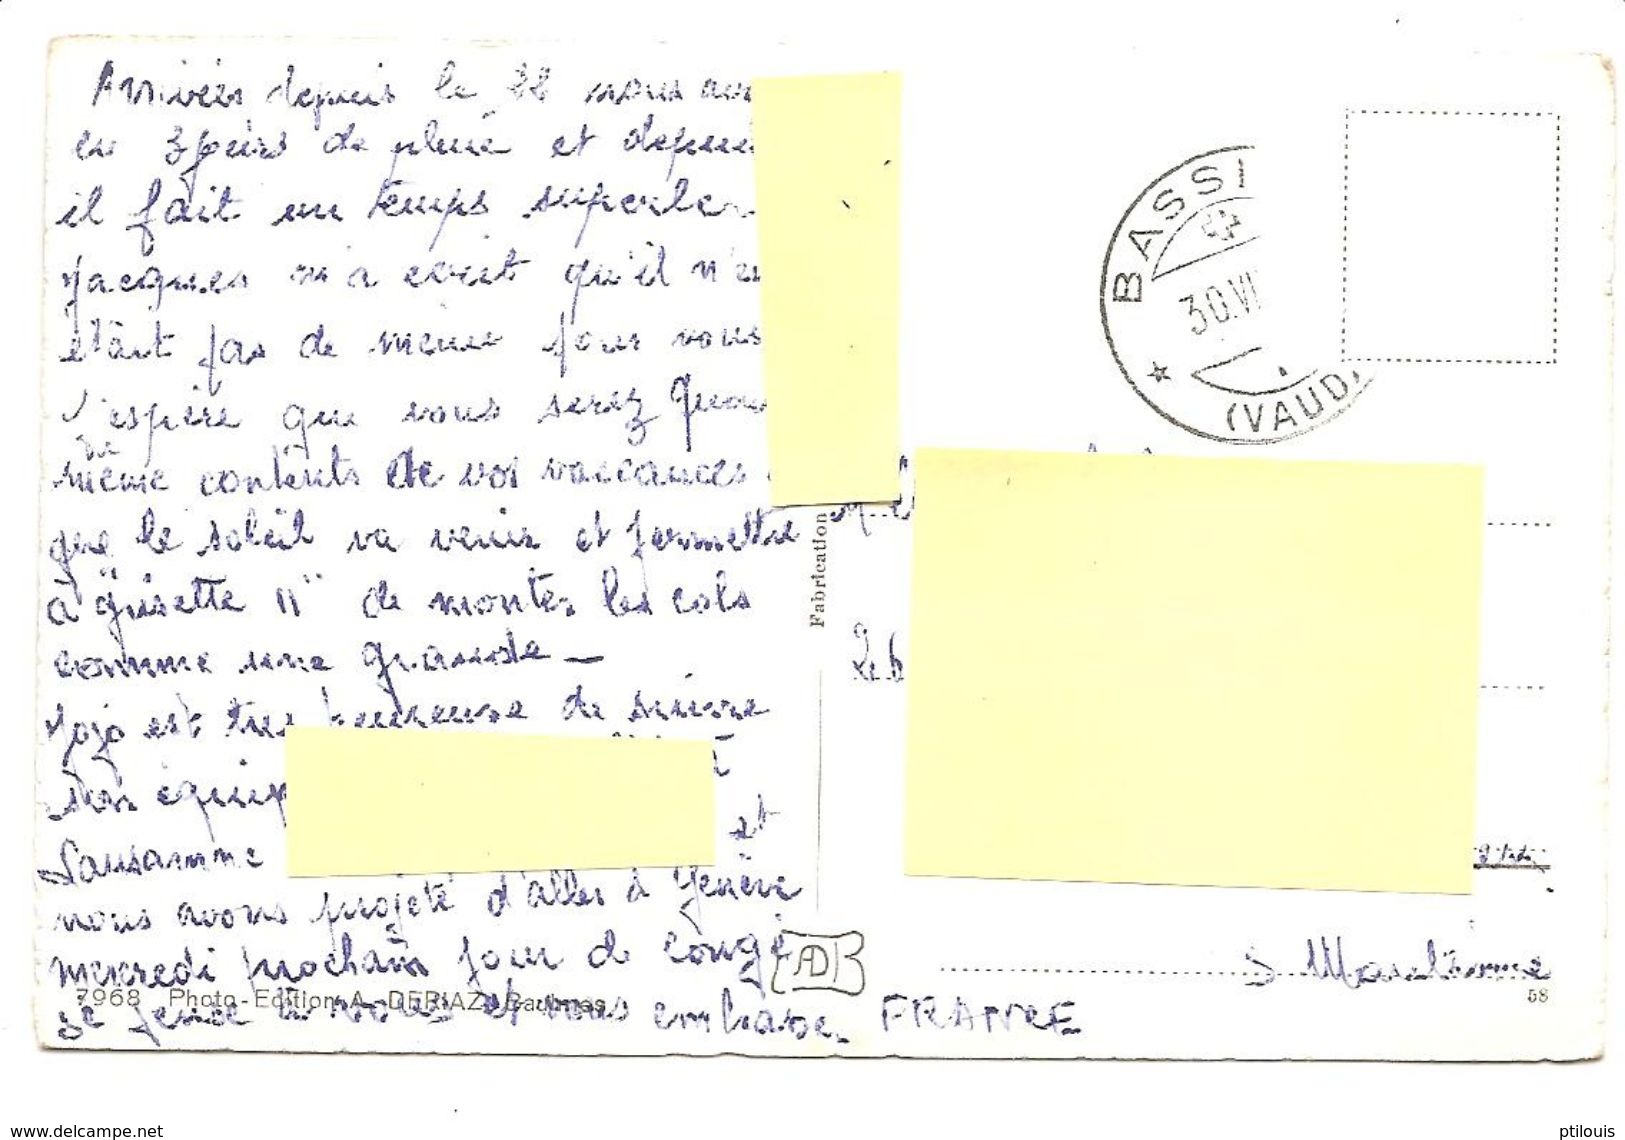 Arrivés depuis le 22 nous av
eu 3 jours de pluie et depui
il fait un temps superbe
Jacques m'a écrit qu'il n'en
était pas de même pour vous
J'espère que vous serez quan
de
même contents de vos vaccances
que le soleil va venir et permettre
à "Guisette II" de monter les cols
comme une grande —
Jojo est très heureuse de suivre
son équip
Lausanne et
nous avons projeté d'aller à Genève
mercredi prochain jour de congé
Je pense à vous et vous embrasse.
7968 Photo-Edition A. DERIAZ, Baulmes
Fabrication
AD
BASSI
30.VI
(VAUD)
S/Marthe
FRANCE
58
www.delcampe.net
ptilouis